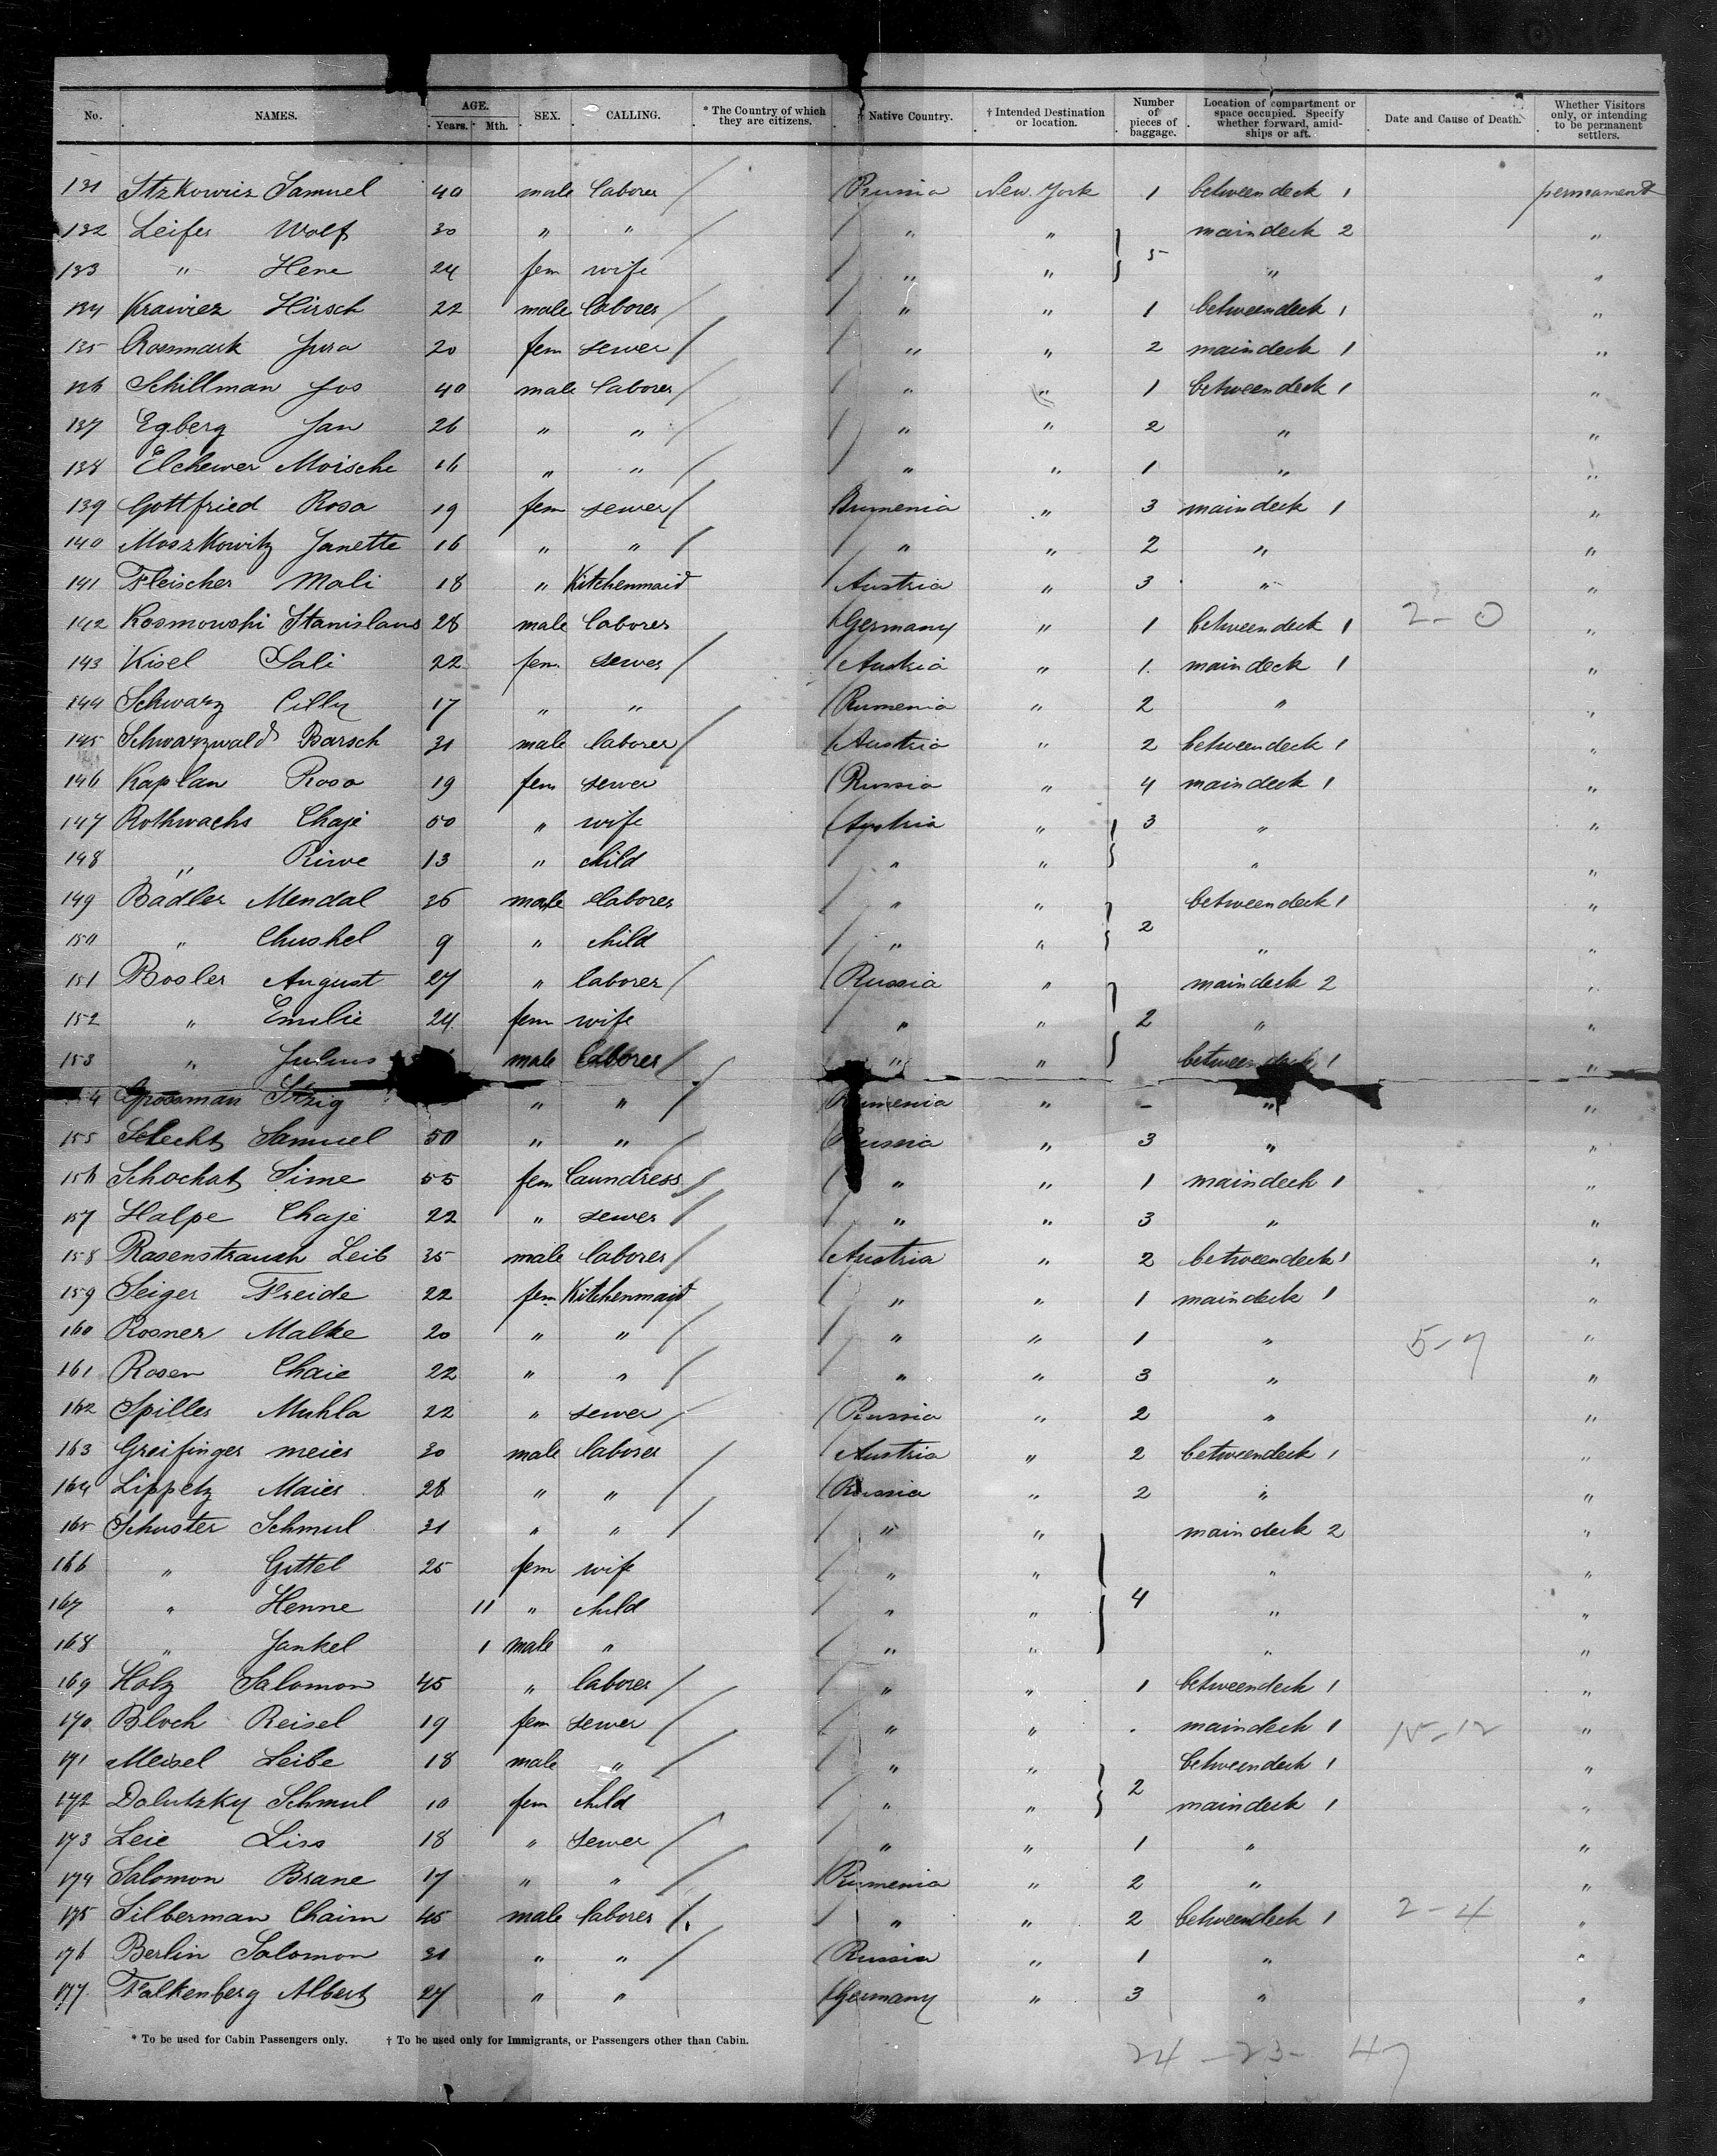 No. NAMES. AGE. Years. Mth. SEX. CALLING. * The Country of which they are citizens. † Native Country. † Intended Destination or location. Number of pieces of baggage. Location of compartment or space occupied. Specify whether forward, amidships or aft. Date and Cause of Death. Whether Visitors only, or intending to be permanent settlers.
131 Itzkowicz Samuel 40 male laborer / Russia New York 1 betweendeck 1 permanent
132 Leifer Wolf 30 " " / " " maindeck 2 "
133 " Hene 24 fem wife " " 5 " "
134 Krawiez Hirsch 22 male laborer / " " 1 betweendeck 1 "
135 Rosenmark Jura 20 fem sewer / " " 2 maindeck 1 "
136 Schillman Jos 40 male laborer / " " 1 betweendeck 1 "
137 Egberg Jan 26 " " / " " 2 " "
138 Elchewer Moische 16 " " / " " 1 " "
139 Gottfried Rosa 19 fem sewer / Rumenia " 3 maindeck 1 "
140 Moszkowitz Janette 16 " " / " " 2 " "
141 Fleischer Mali 18 " Kitchenmaid Austria " 3 " "
142 Kosmowski Stanislaus 28 male laborer Germany " 1 betweendeck 1 2-0 "
143 Kisel Sali 22 fem. sewer / Austria " 1 maindeck 1 "
144 Schwarz Cilly 17 " " Rumenia " 2 " "
145 Schwarzwald Barsch 31 male laborer / Austria " 2 betweendeck 1 "
146 Kaplan Rosa 19 fem sewer Russia " 4 maindeck 1 "
147 Rothwachs Chaje 50 " wife Austria " 3 " "
148 " Riwe 13 " child " " " "
149 Badler Mendal 26 male laborer " " betweendeck 1 "
150 " Chuskel 9 " child " " 2 " "
151 Bosler August 27 " laborer / Russia " maindeck 2 "
152 " Emilie 24 fem wife " " 2 " "
153 " Julius male laborer / " " betweendeck 1 "
Grossman Itzig " " / Rumenia " - " "
155 Slecht Samuel 50 " " / Russia " 3 " "
156 Schochat Sime 55 fem laundress / " " 1 maindeck 1 "
157 Halpe Chaje 22 " sewer / " " 3 " "
158 Rasenstrauch Leib 35 male laborer / Austria " 2 betweendeck 1 "
159 Seiger Freide 22 fem Kitchenmaid " " 1 maindeck 1 "
160 Rosner Malke 20 " " / " " 1 " 5-7 "
161 Rosen Chaie 22 " " / " " 3 " "
162 Spiller Muhla 22 " sewer / Russia " 2 " "
163 Greifinger meier 30 male laborer / Austria " 2 betweendeck 1 "
164 Lippetz Maier 28 " " / Russia " 2 " "
165 Schuster Schmul 31 " " / " " maindeck 2 "
166 " Gittel 25 fem wife " " " "
167 " Henne 11 " child " " 4 " "
168 " Jankel 1 male " " " " "
169 Holz Salomon 45 " laborer / " " 1 betweendeck 1 "
170 Bloch Reisel 19 fem sewer / " " . maindeck 1 15-12 "
171 Meisel Leibe 18 male " / " " betweendeck 1 "
172 Dolutzky Schmul 10 fem child " " 2 maindeck 1 "
173 Leie Liss 18 " sewer / " " 1 " "
174 Salomon Brane 17 " " / Rumenia " 2 " "
175 Silberman Chaim 45 male laborer / " " 2 betweendeck 1 2-4 "
176 Berlin Salomon 31 " " / Russia " 1 " "
177 Falkenberg Albert 27 " " Germany " 3 " "
* To be used for Cabin Passengers only. † To be used only for Immigrants, or Passengers other than Cabin.
24 - 23 - 47